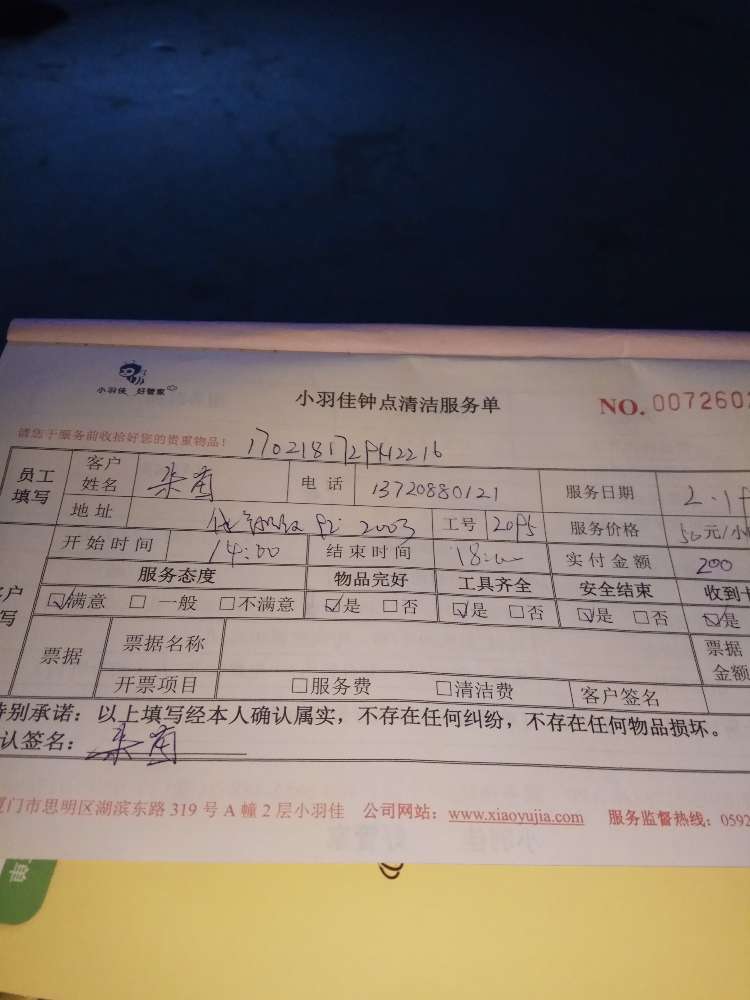 小羽佳 好管家
小羽佳钟点清洁服务单
NO. 0072602
请您于服务前收拾好您的贵重物品！
员工填写 客户姓名 朱 电话 13720880121 服务日期 2.1
地址 2003 工号 服务价格 50元/小
开始时间 14:00 结束时间 18:00 实付金额 200
服务态度 物品完好 工具齐全 安全结束 收到
☑满意 □一般 □不满意 ☑是 □否 ☑是 □否 ☑是 □否 ☑是
户
写
票据 票据名称 票据金额
开票项目 □服务费 □清洁费 客户签名
别承诺：以上填写经本人确认属实，不存在任何纠纷，不存在任何物品损坏。
认签名：朱
门市思明区湖滨东路 319 号 A 幢 2 层小羽佳 公司网站：www.xiaoyujia.com 服务监督热线：0592
单